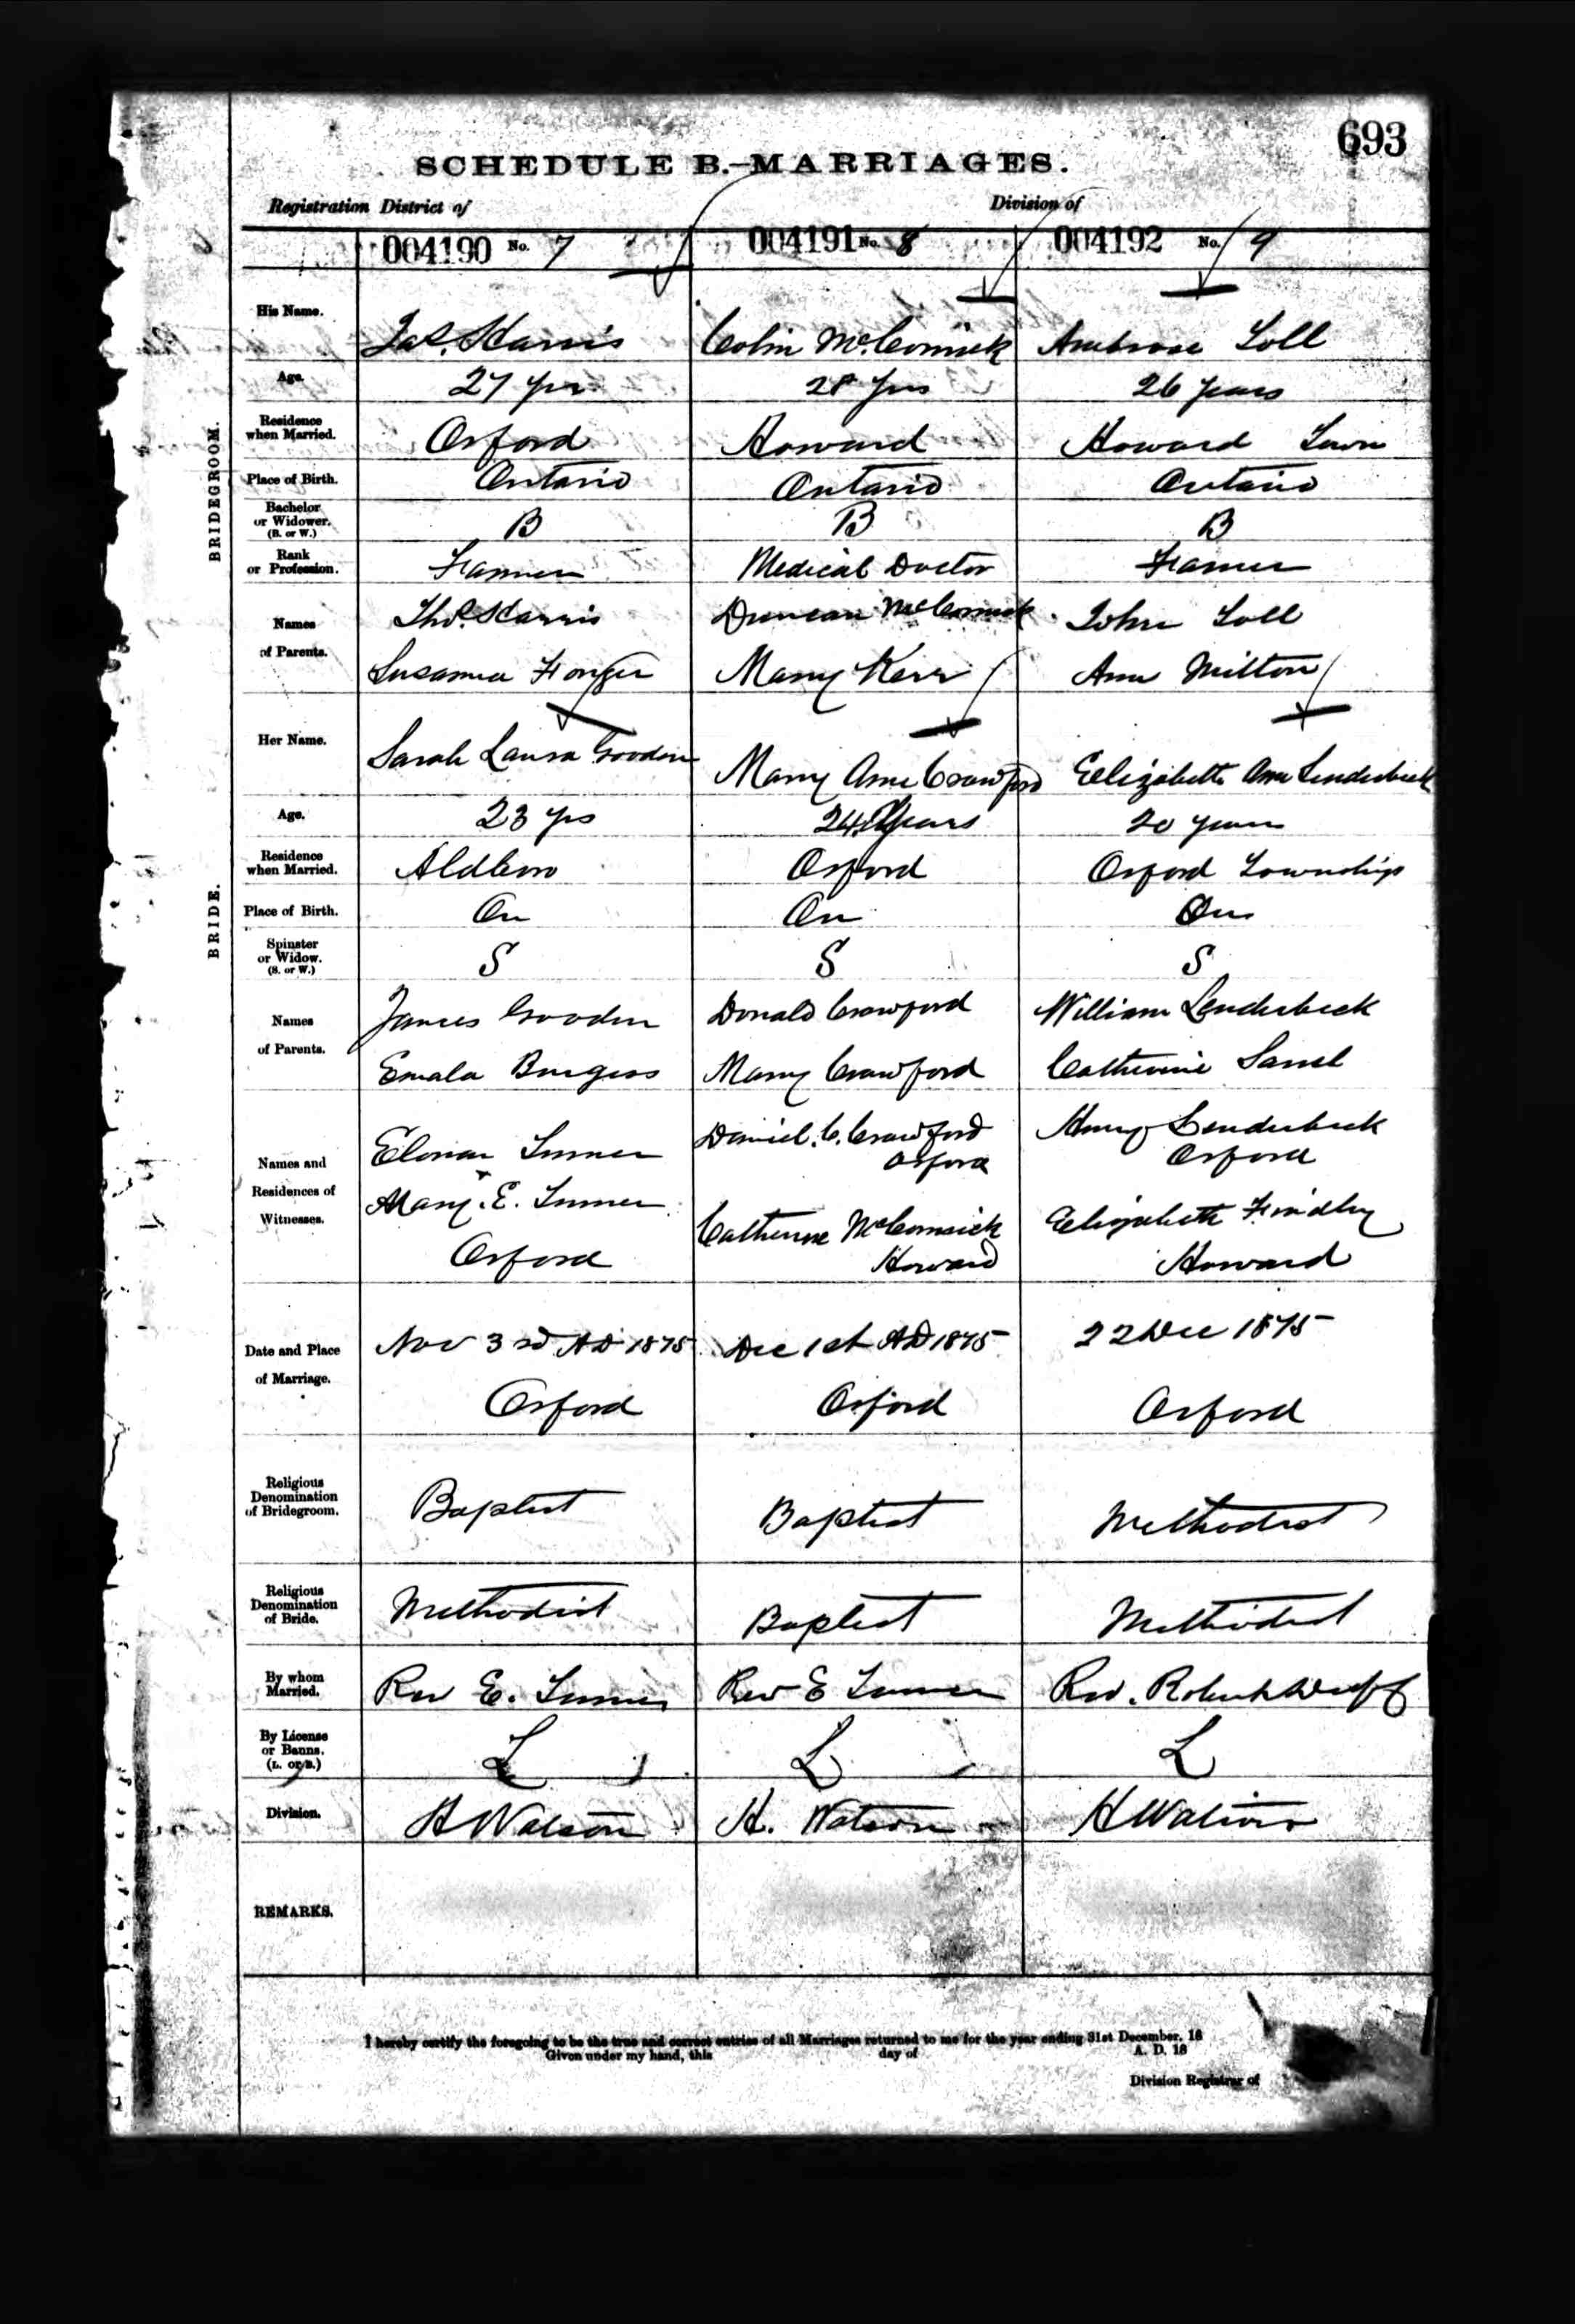 693
SCHEDULE B.—MARRIAGES.
Registration District of
Division of
004190 No. 7
004191 No. 8
004192 No. 9
BRIDEGROOM.
His Name.
Jas. Harris
Colin McCormick
Ambrose Toll
Age.
27 yrs
28 yrs
26 years
Residence when Married.
Orford
Howard
Howard Town
Place of Birth.
Ontario
Ontario
Ontario
Bachelor or Widower. (B. or W.)
B
B
B
Rank or Profession.
Farmer
Medical Doctor
Farmer
Names of Parents.
Thos. Harris
Duncan McCormick
John Toll
Susanna
Mary Kerr
Ann Milton
BRIDE.
Her Name.
Sarah Laura Gooden
Mary Ann Crawford
Elizabeth Ann Lenderbeck
Age.
23 yrs
24 years
20 years
Residence when Married.
Aldboro
Orford
Orford Township
Place of Birth.
On
On
On
Spinster or Widow. (S. or W.)
S
S
S
Names of Parents.
James Gooden
Donald Crawford
William Lenderbeck
Emala Burgess
Mary Crawford
Catherine
Names and Residences of Witnesses.
Turner
Daniel. C. Crawford
Orford
Henry Lenderbeck
Orford
Mary. E. Turner
Orford
Catherine McCormick
Howard
Elizabeth Findley
Howard
Date and Place of Marriage.
Nov 3rd AD 1875
Dec 1st AD 1875
22 Dec 1875
Orford
Orford
Orford
Religious Denomination of Bridegroom.
Baptist
Baptist
Methodist
Religious Denomination of Bride.
Methodist
Baptist
Methodist
By whom Married.
Rev E. Turner
Rev E Turner
Rev. Robert
By License or Banns. (L. or B.)
L
L
L
Division.
H Watson
H. Watson
H Watson
REMARKS.
I hereby certify the foregoing to be the true and correct entries of all Marriages returned to me for the year ending 31st December, 18
Given under my hand, this day of A. D. 18
Division Registrar of